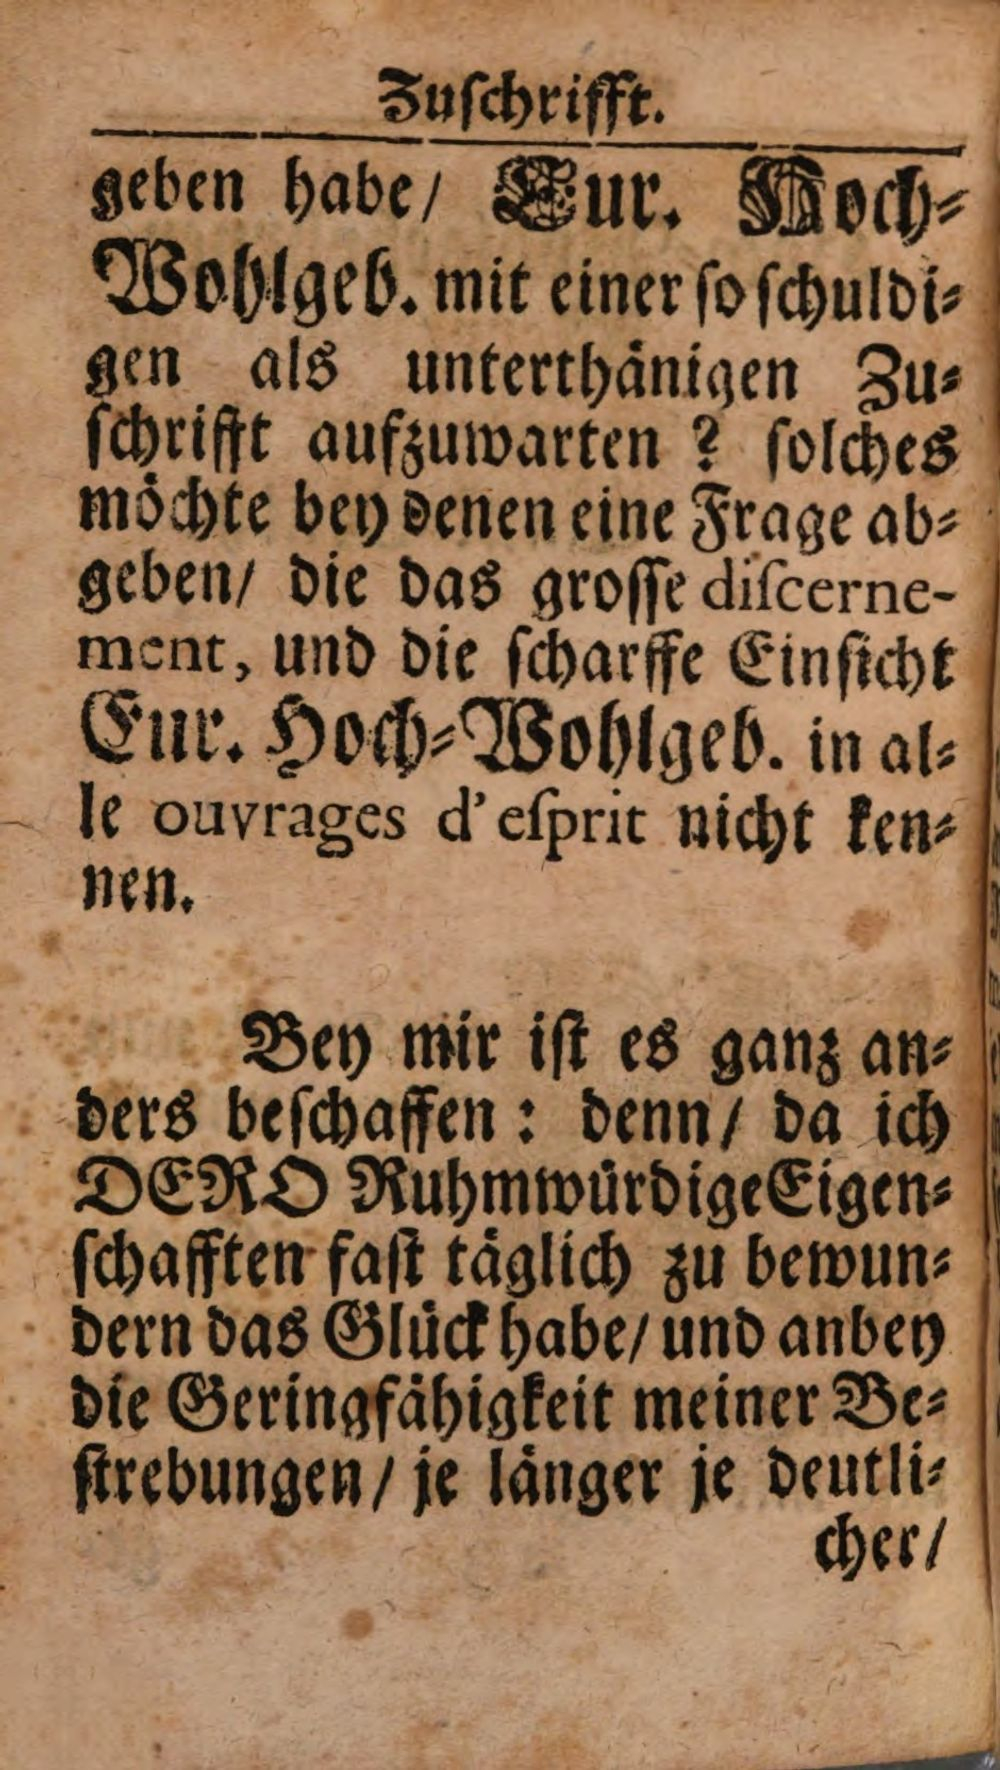 Zuſchrifft.
geben habe/ Eur. Hoch⸗
Wohlgeb. mit einer ſo ſchuldi⸗
gen als unterthänigen Zu⸗
ſchrifft aufzuwarten ? ſolches
möchte bey denen eine Frage ab⸗
geben/ die das groſſe diſcerne-
ment, und die ſcharffe Einſicht
Eur. Hoch⸗Wohlgeb. in al⸗
le ouvrages d'eſprit nicht ken⸗
nen.
Bey mir iſt es ganz an⸗
ders beſchaffen : denn/ da ich
DERO Ruhmwürdige Eigen⸗
ſchafften faſt täglich zu bewun⸗
dern das Glück habe/ und anbey
die Geringfähigkeit meiner Be⸗
ſtrebungen/ je länger je deutli⸗
cher/